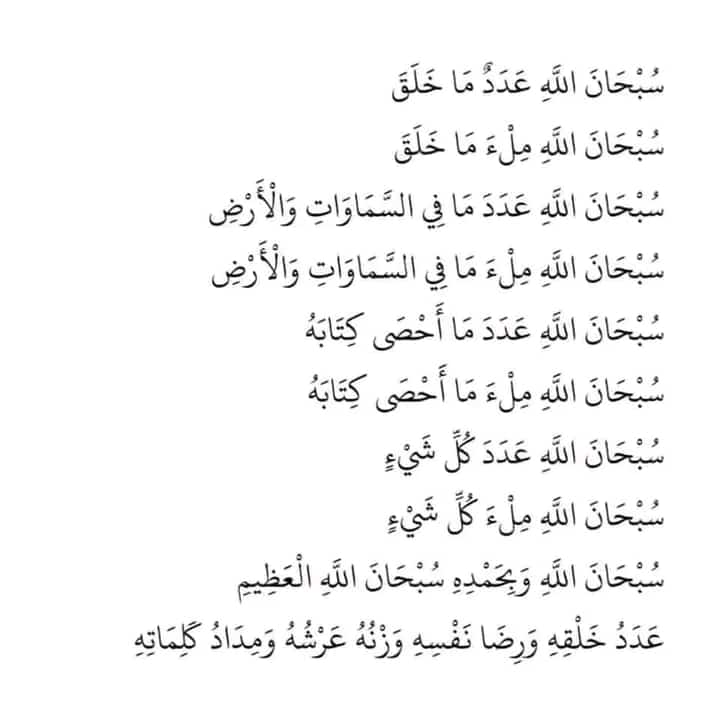 سُبْحَانَ اللَّهِ عَدَدٌ مَا خَلَقَ
سُبْحَانَ اللَّهِ مِلْءَ مَا خَلَقَ
سُبْحَانَ اللَّهِ عَدَدَ مَا فِي السَّمَاوَاتِ وَالْأَرْضِ
سُبْحَانَ اللَّهِ مِلْءَ مَا فِي السَّمَاوَاتِ وَالْأَرْضِ
سُبْحَانَ اللَّهِ عَدَدَ مَا أَحْصَى كِتَابَهُ
سُبْحَانَ اللَّهِ مِلْءَ مَا أَحْصَى كِتَابَهُ
سُبْحَانَ اللَّهِ عَدَدَ كُلِّ شَيْءٍ
سُبْحَانَ اللَّهِ مِلْءَ كُلِّ شَيْءٍ
سُبْحَانَ اللَّهِ وَبِحَمْدِهِ سُبْحَانَ اللَّهِ الْعَظِيمِ
عَدَدُ خَلْقِهِ وَرِضَا نَفْسِهِ وَزْنُهُ عَرْشُهُ وَمِدَادُ كَلِمَاتِهِ